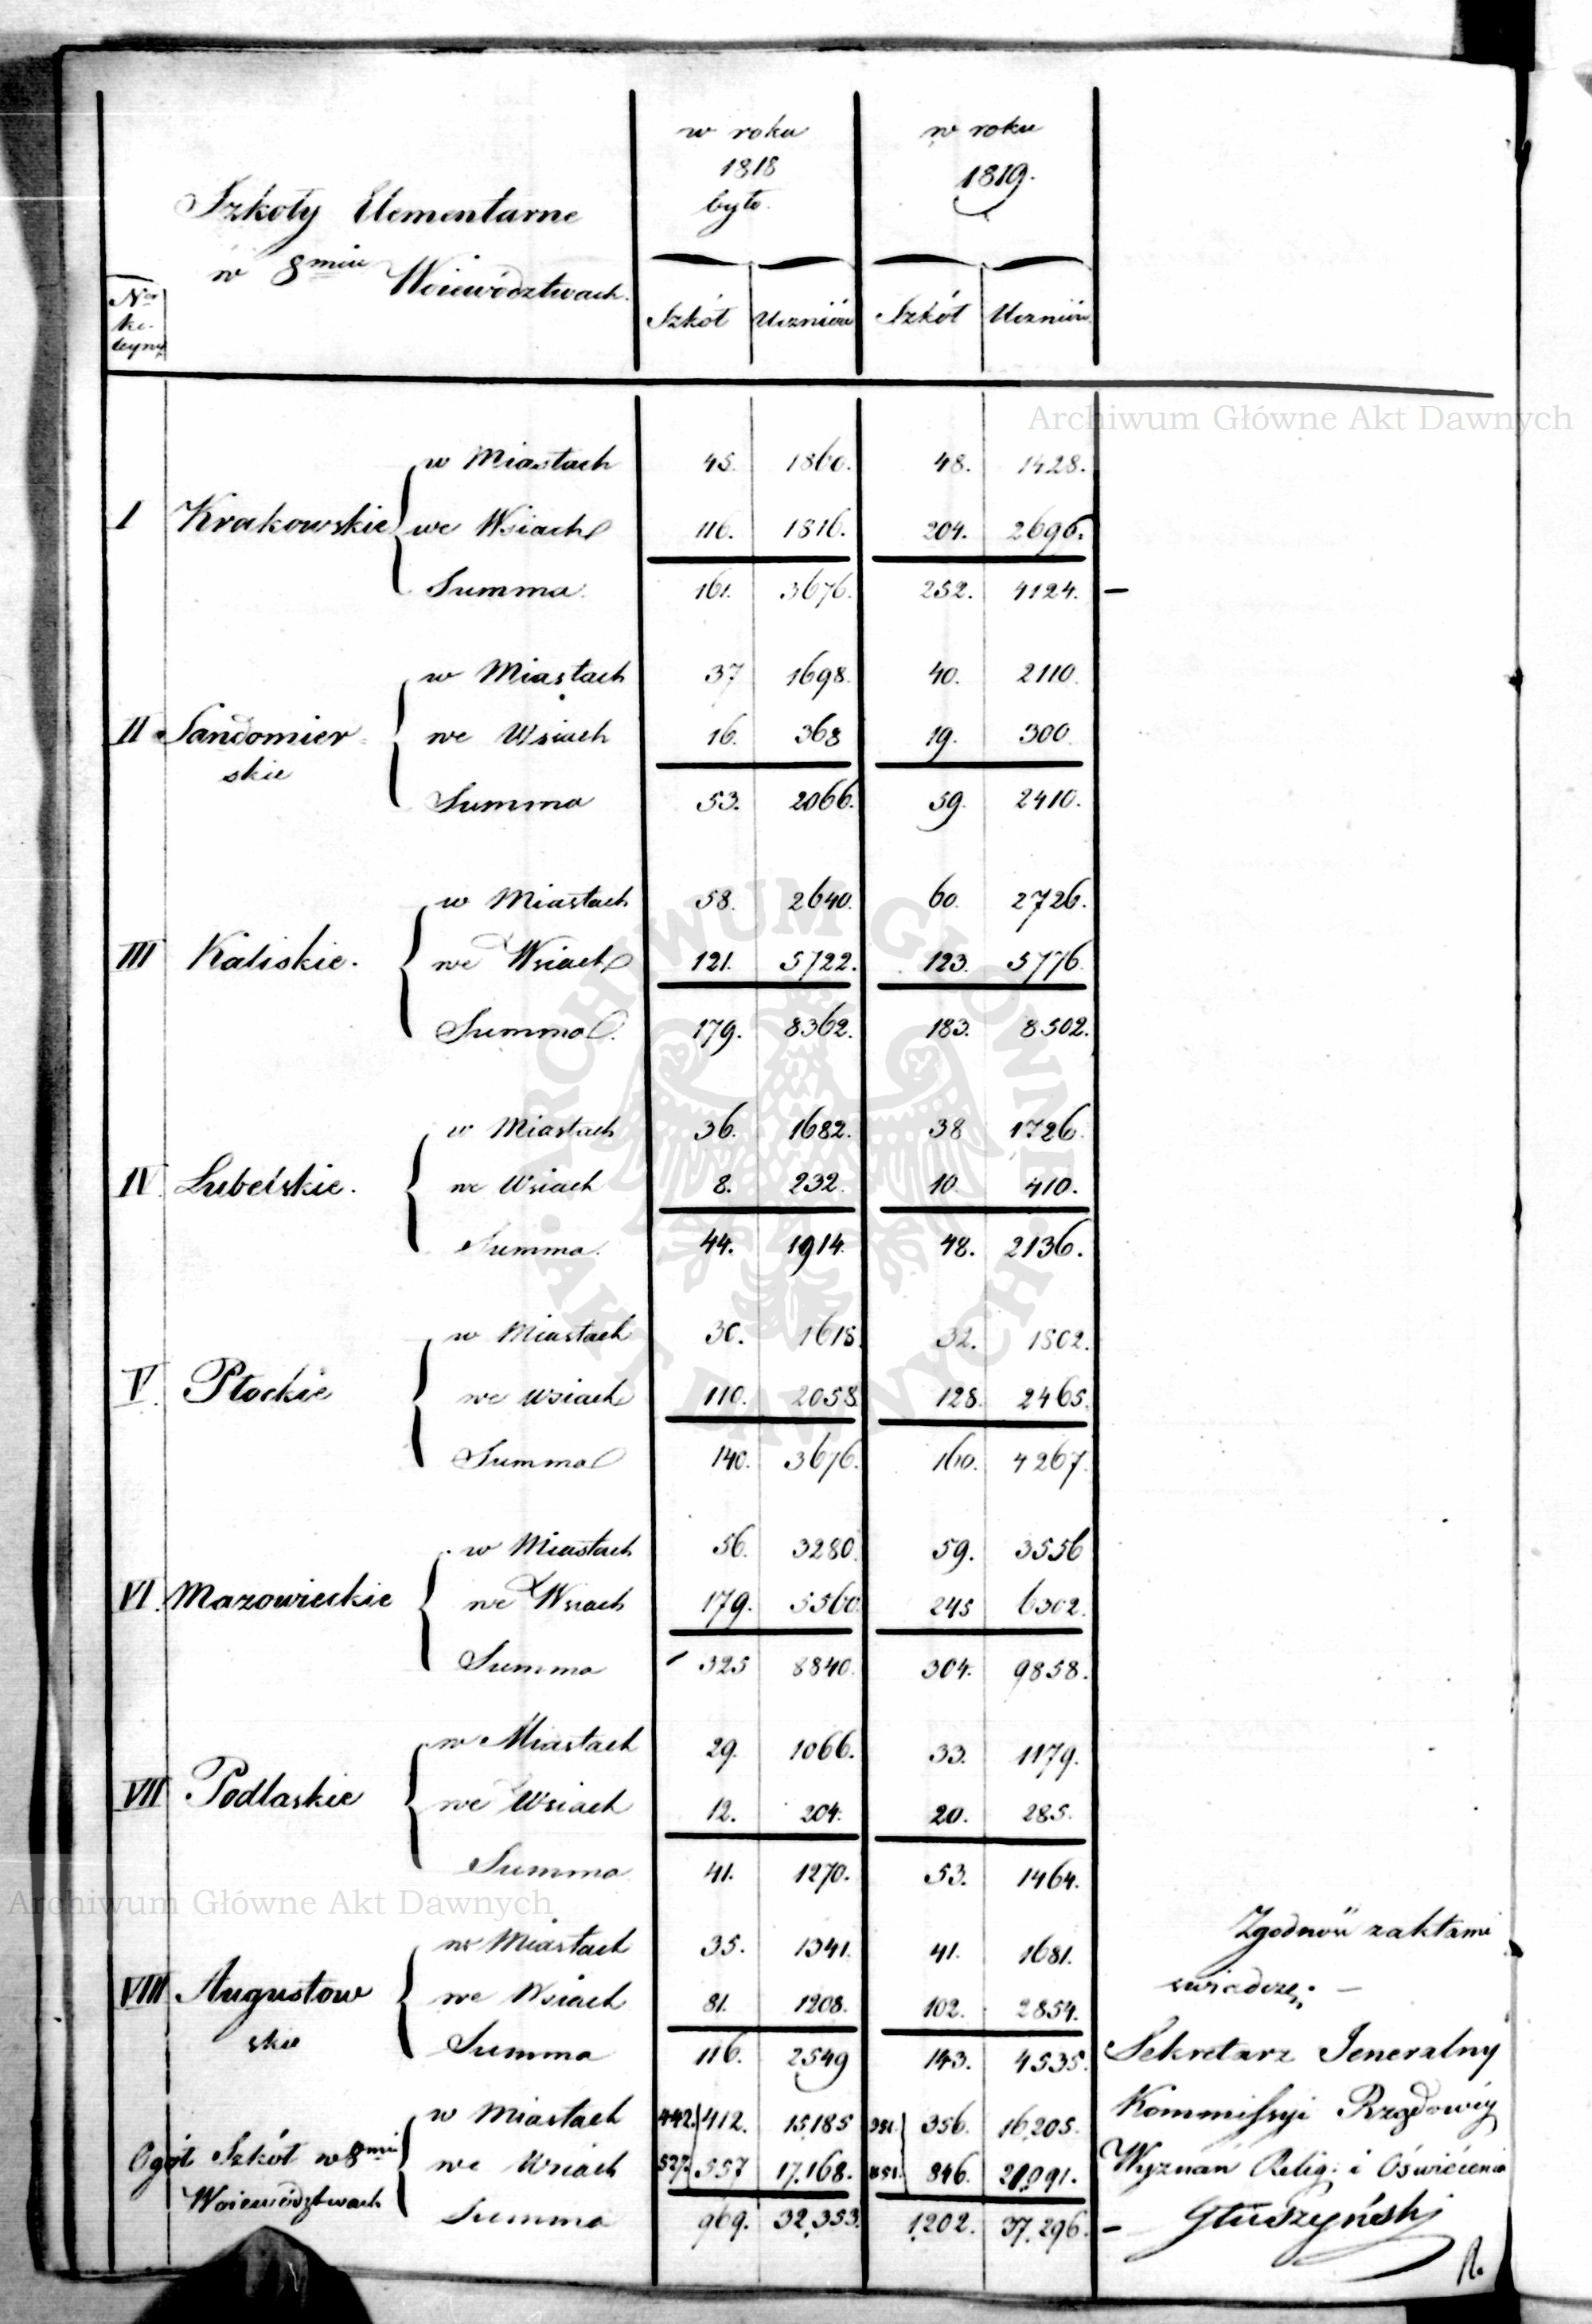 w roku w roku
1818 1819.
było.
Szkoły Elementarne
w 8miu Woiewództwach.
Szkół Uczniów Szkół Uczniów
Nr
ko-
leyny
Archiwum Główne Akt Dawnych
w Miastach 45. 1860. 48. 1428.
I Krakowskie we Wsiach 116. 1816. 204. 2696.
Summa. 161. 3676. 252. 4124. —
w Miastach 37 1698. 40. 2110.
II Sandomier we Wsiach 16. 368 19. 300.
skie
Summa 53. 2066. 59. 2410.
w Miastach 58. 2640. 60. 2726.
III Kaliskie. we Wsiach 121. 5722. 123. 5776.
Summa. 179. 8362. 183. 8502.
w Miastach 36. 1682. 38 1726.
IV. Lubelskie. we Wsiach 8. 232. 10. 410.
Summa. 44. 1914. 48. 2136.
w Miastach 30. 1618. 32. 1802.
V. Płockie we Wsiach 110. 2058. 128. 2465.
Summa 140. 3676. 160. 4267.
w Miastach 56. 3280. 59. 3556
VI. Mazowieckie we Wsiach 179. 5560. 245 6302.
Summa 325 8840. 304. 9858.
w Miastach 29. 1066. 33. 1179.
VII Podlaskie we Wsiach 12. 204. 20. 285.
Summa 41. 1270. 53. 1464.
Archiwum Główne Akt Dawnych
w Miastach 35. 1341. 41. 1681.
VIII Augustow we Wsiach 81. 1208. 102. 2854.
skie Summa 116. 2549 143. 4535.
w Miastach 442. 412. 15,185 351. 356. 16,205.
Ogół Szkół w 8miu we Wsiach 527. 557 17,168. 851. 846. 21,091.
Woiewództwach
Summa 969. 32,353. 1,202. 37,296. —
Zgodność z aktami
swiadczę. —
Sekretarz Jeneralny
Kommissyi Rządowéy
Wyznań Relig: i Oświécenia
Głuszyński
ARCHIWUM GŁÓWNE
AKT DAWNYCH